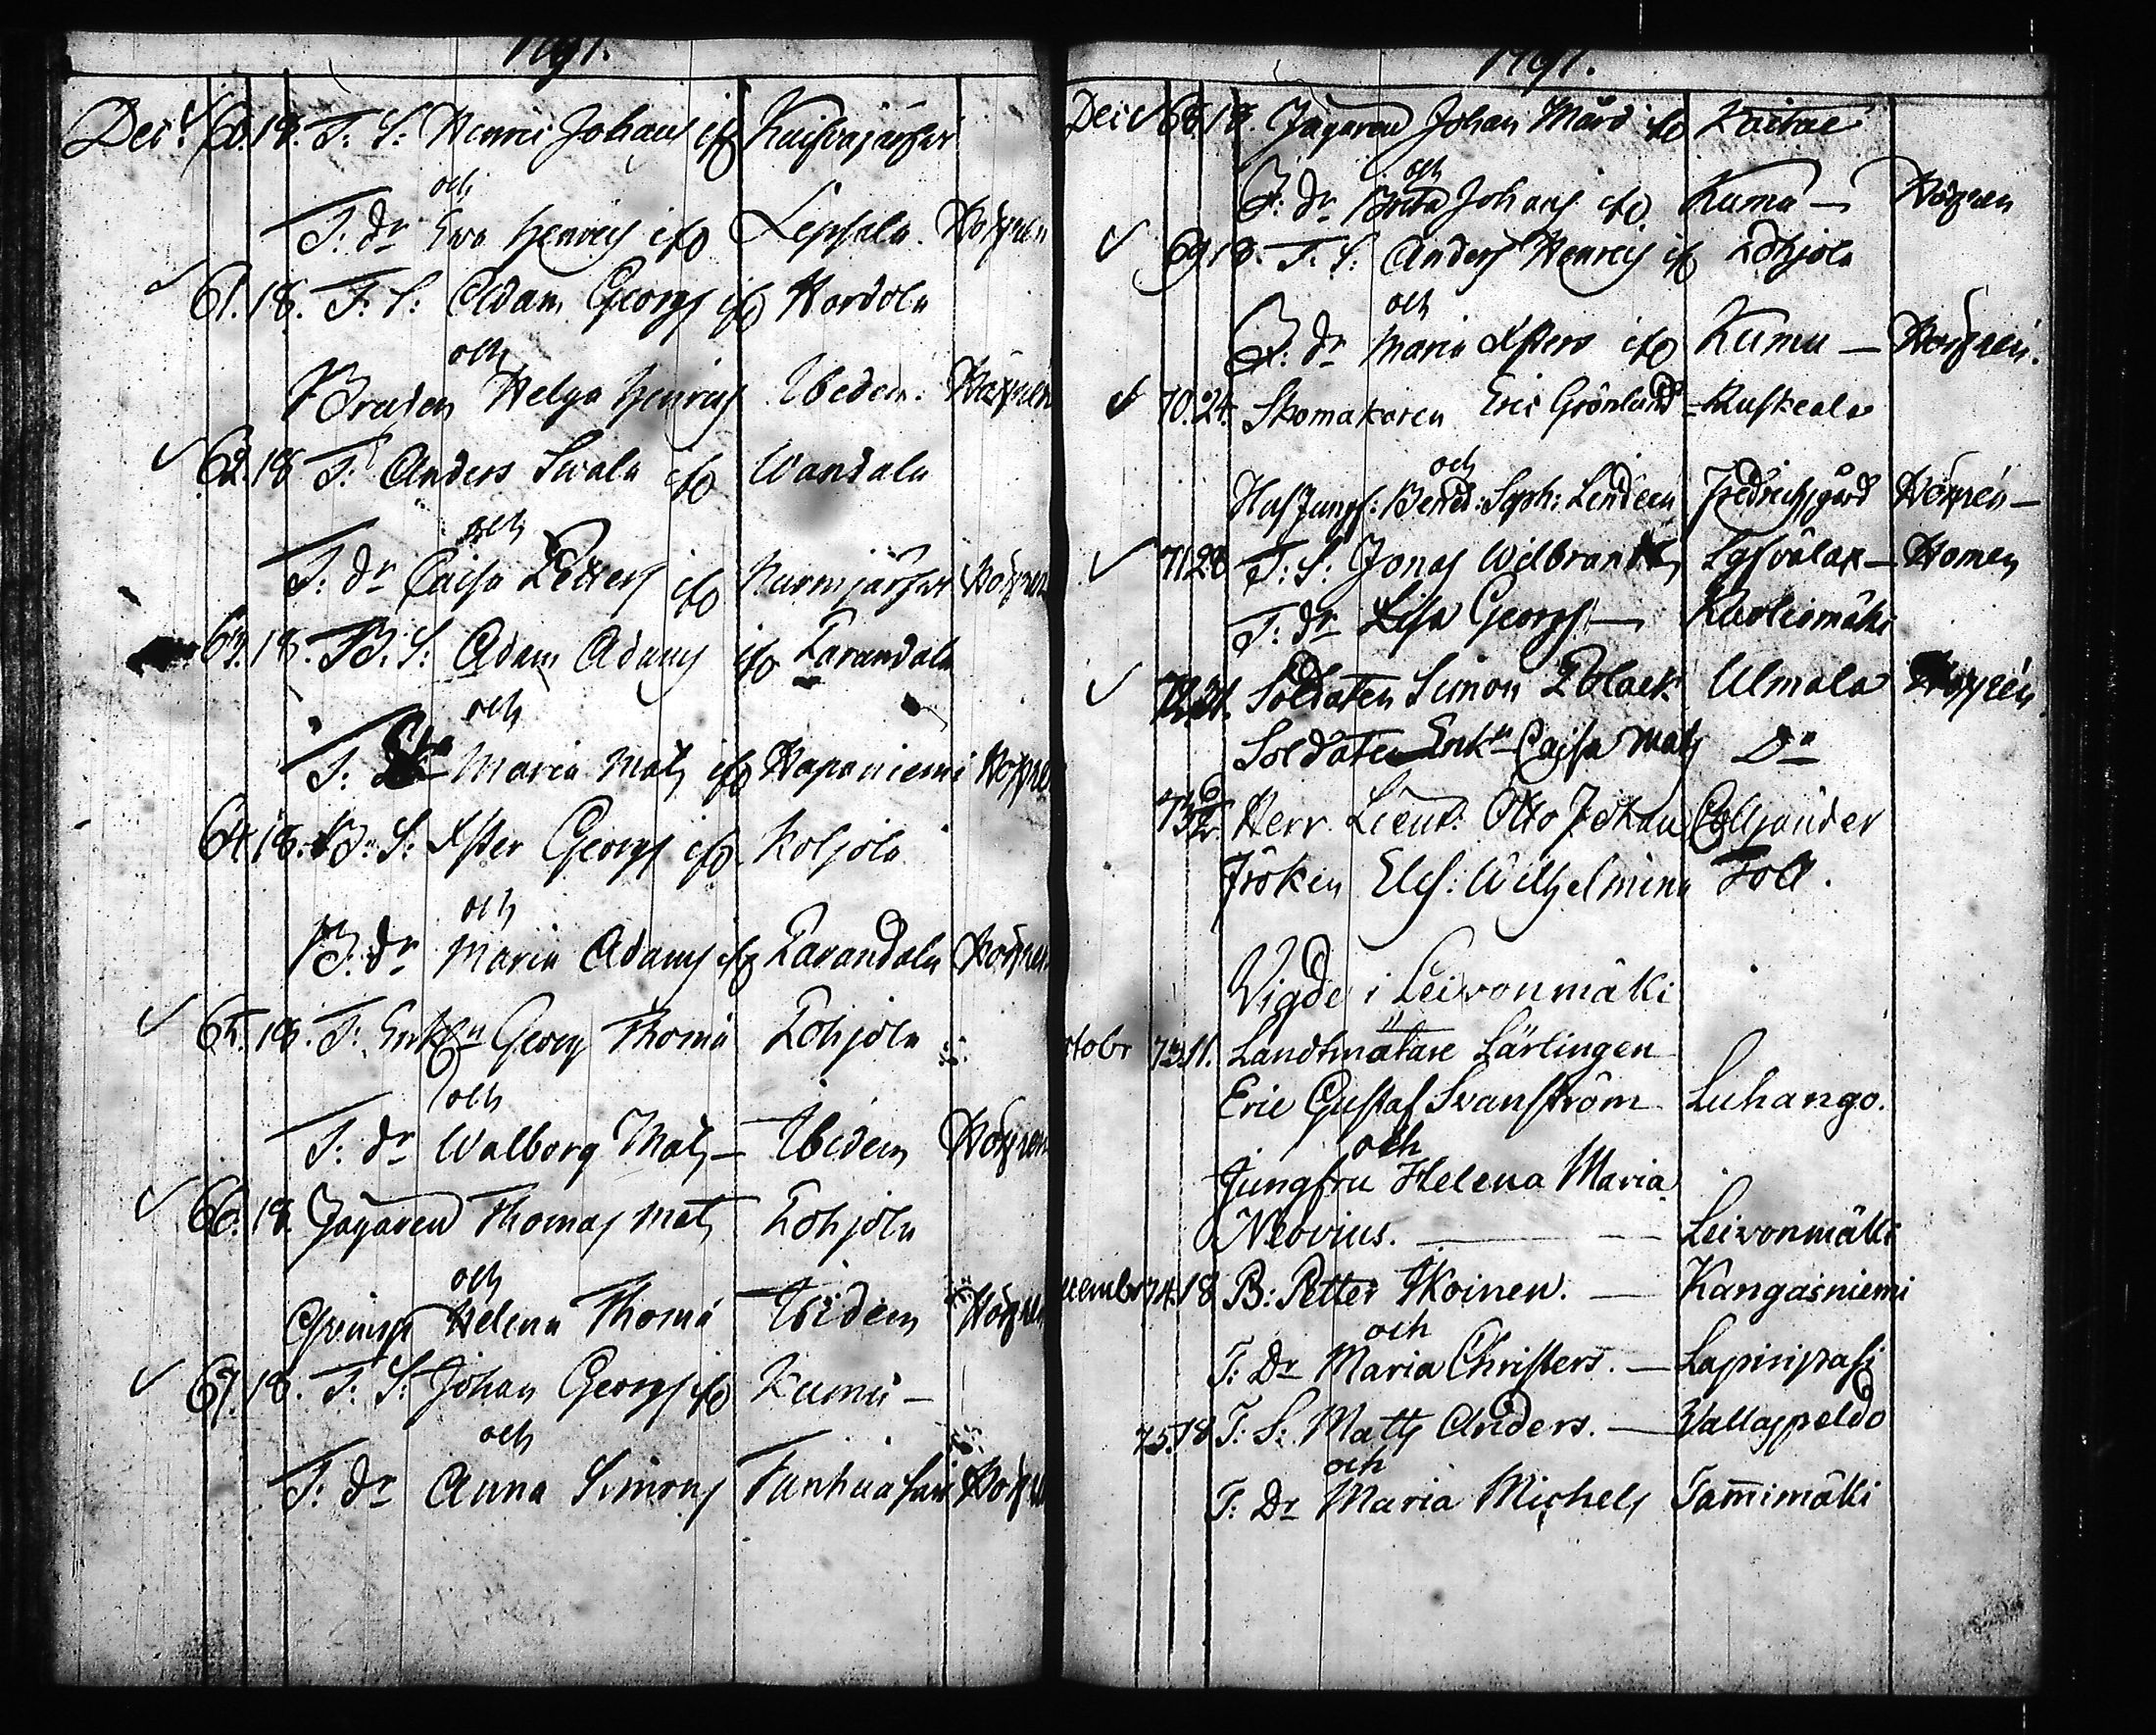 1791.
Dec: 60. 18. T: S: Henric Johans ifr
och
T: dr Ewa Henrics ifr Lepsala. Höxren
61. 18. T: S: Adam Georgs ifr Hordola
och
Bruden Helga Henrics Ibidem. Höxren
62. 18 T: Anders Swala ifr Wandala
och
T: dr Caisa Petters ifr Nurmijärfwi Höxren
63. 18. B: S: Adam Adams ifr Tarandala
och
T: Maria Mats ifr Hapaniemi Höxren
64. 18. B: S: Xster Georgs ifr Koljola
och
B: dr Maria Adams ifr Tarandala Höxren
65. 18. T: Enkln Georg Thomæ Pohjola
och
T: dr Walborg Mats — Ibidem Höxren
66. 18. Jägaren Thomas Mats Pohjola
och
Helena Thomæ Ibidem Höxren
67. 18. T: S: Johan Georgs ifr Kumu —
och
T: dr Anna Simons Höxren
1791.
Dec 68 18. Jägaren Johan Mård ifr
och
T: dr Brita Johans ifr Kumu — Höxren
69. 18. T: S: Anders Henrics ifr Pohjola
och
T: dr Maria Xsters ifr Kumu — Höxren.
70. 24. Skomakaren Eric Grönlund — Ruskeala
och
Hus Jungf: Bened: Soph: Lindeen Fredrichsgård Höxrén —
71. 28 T: S: Jonas Wilbrants — Homen
T: dr Lisa Georgs —
72. 31. Soldaten Simon Polack Ulmala Höxrén
Soldate Enkn Caisa Mats Do
73 Herr Lieut: Otto Johan Colljander
Fröken Elis: Wilhelmina Toll.
Vigde i Leivonmäki
ctobr 73. 11. Landtmätare Lärlingen
Eric Gustaf Svanström Luhango.
och
Jungfru Helena Maria
Neovius. — — Leivonmäki
cember 74. 18 B: Petter Ikoinen. — Kangasniemi
och
T: Dr Maria Christers. — Lapinpasi
75. 18 T: S: Matts Anders. — Wallaspeldo
och
T: Dr Maria Michels Tam̄imäki